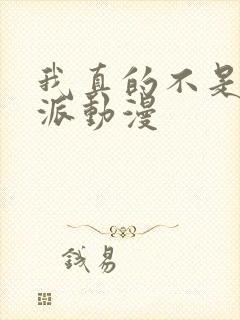 我真的不是
派動漫
钱易